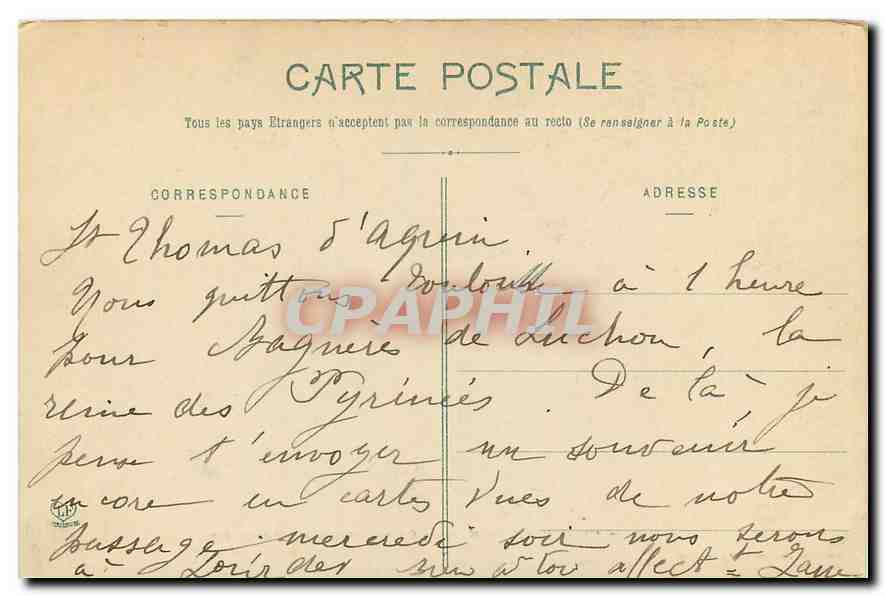 CARTE POSTALE
Tous les pays Etrangers n'acceptent pas la correspondance au recto (Se renseigner à la Poste)
CORRESPONDANCE
ADRESSE
St Thomas d'Aquin
Nous quittons Toulouse à 1 heure
CPAPHIL
pour Bagnères de Luchon, la
reine des Pyrénées. De là, je
pense t'envoyer un souvenir
encore en cartes vues de notre
LF
passage. mercredi soir nous serons
à Lourdes à toi affect t